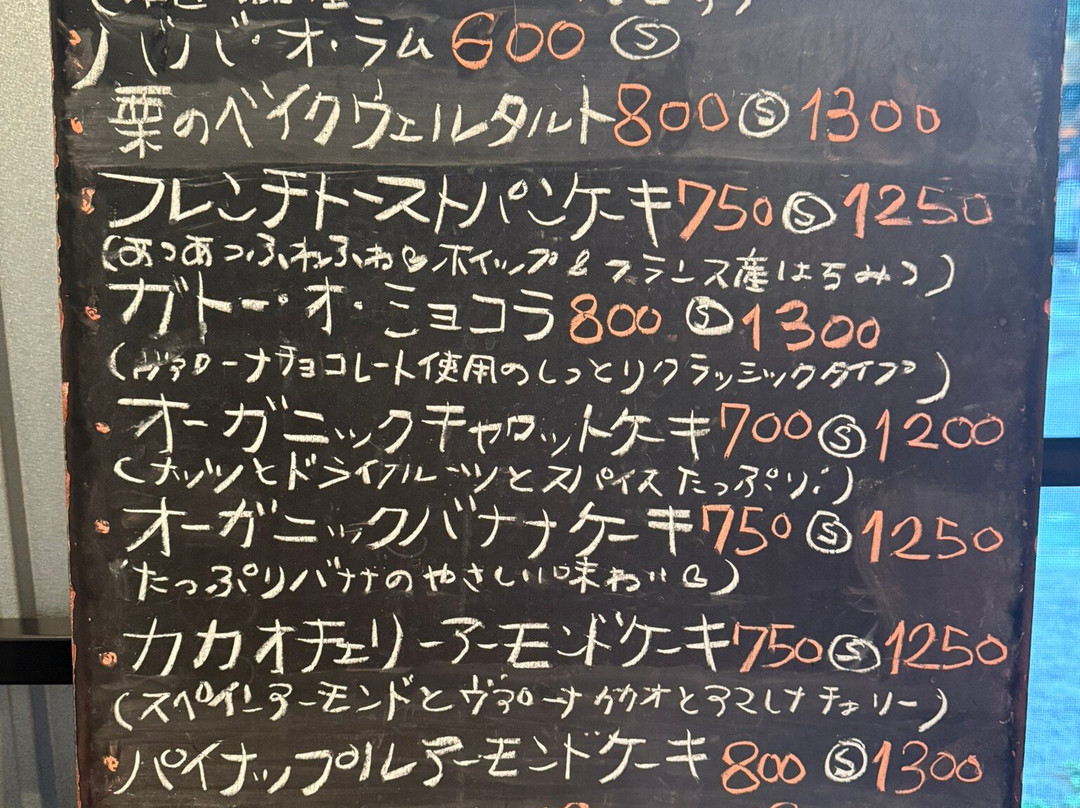 ババ・オ・ラム 600 Ⓢ
栗のベイクウェルタルト 800 Ⓢ 1300
フレンチトーストパンケーキ 750 Ⓢ 1250
(あつあつふわふわ♡ホイップ&フランス産はちみつ)
ガトー・オ・ショコラ 800 Ⓢ 1300
(ヴァローナチョコレート使用のしっとりクラッシックタイプ)
オーガニックキャロットケーキ 700 Ⓢ 1200
(ナッツとドライフルーツとスパイスたっぷり!)
オーガニックバナナケーキ 750 Ⓢ 1250
(たっぷりバナナのやさしい味わい♡)
カカオチェリーアーモンドケーキ 750 Ⓢ 1250
(スペインアーモンドとヴァローナカカオとアマレナチェリー)
パイナップルアーモンドケーキ 800 Ⓢ 1300